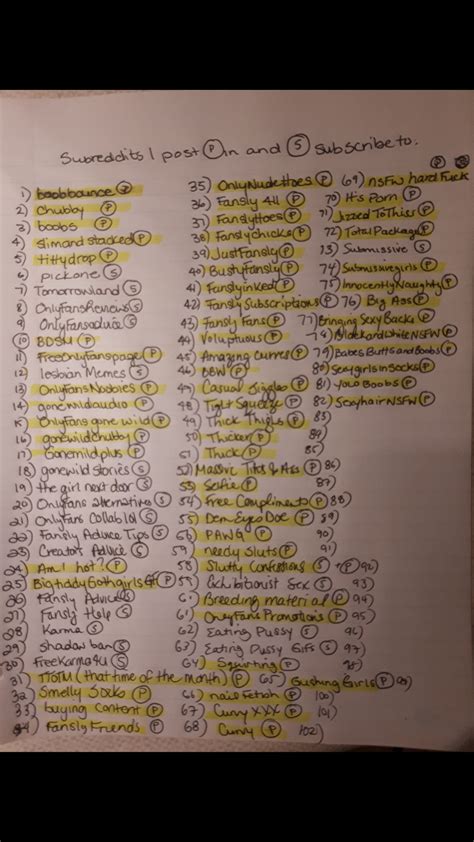 Subreddits I post (P) in and (S) subscribe to.
(P) (S)
1) boobbounce (P)
2) Chubby (P)
3) boobs (P)
4) slimandstacked (P)
5) tittydrop (P)
6) pickone (S)
7) Tomorrowland (S)
8) OnlyFansReviews (S)
9) OnlyFansadvice (S)
10) BDSM (P)
11) FreeOnlyfanspage (P)
12) lesbian Memes (S)
13) OnlyFansNoobies (P)
14) gonewildaudio (P)
15) Onlyfans gone wild (P)
16) gonewildchubby (P)
17) Gonemildplus (P)
18) gonewild stories (S)
19) the girl next door (S)
20) OnlyFans alternatives (S)
21) OnlyFans Collab 101 (S)
22) Fansly Advice Tips (S)
23) Creators Advice (S)
24) Am I hot? (P)
25) Bigtiddygothgirls GF (P)
26) Fansly Advice (S)
27) Fansly Help (S)
28) Karma (S)
29) Shadow ban (S)
30) FreeKarma4U (S)
31) TTOTM (that time of the month) (P)
32) Smelly Socks (P)
33) buying content (P)
34) Fansly Friends (P)
35) OnlyNudeHoes (P)
36) Fansly 411 (P)
37) Fanslytoes (P)
38) Fanslychicks (P)
39) JustFansly (P)
40) BustyFansly (P)
41) Fanslyinked (P)
42) FanslySubscriptions (P)
43) Fansly Fans (P)
44) Voluptuous (P)
45) Amazing Curves (P)
46) BBW (P)
47) Casual Jiggles (P)
48) Tight Squeeze (P)
49) Thick Thighs (P)
50) Thicker (P)
51) Thick (P)
52) Massive Tits & Ass (P)
53) Selfie (P)
54) Free Compliments (P)
55) Dem Eyes Doe (P)
56) PAWG (P)
57) needy sluts (P)
58) Slutty Confessions (S) + (P)
59) Exhibitionist Sex (S)
60) Breeding material (P)
61) OnlyFans Promotions (P)
62) Eating Pussy (S)
63) Eating Pussy Gifs (S)
64) Squirting (P)
65) GushingGirls (P)
66) naise Fetish (P)
67) Curvy XXX (P)
68) Curvy (P)
69) NSFW hardfuck
70) It's Porn (P)
71) Jizzed To This (P)
72) Total Package (P)
73) Submissive (S)
74) Submissivegirls (P)
75) InnocentlyNaughty (P)
76) Big Ass (P)
77) Bringing Sexy Back (P)
78) BlackandWhiteNSFW (P)
79) Babes Butts and Boobs (P)
80) Sexy girls in Socks (P)
81) yolo Boobs (P)
82) SexyhairNSFW (P)
83)
84)
85)
86)
87)
88)
89)
90)
91)
92)
93)
94)
95)
96)
97)
98)
99)
100)
101)
102)